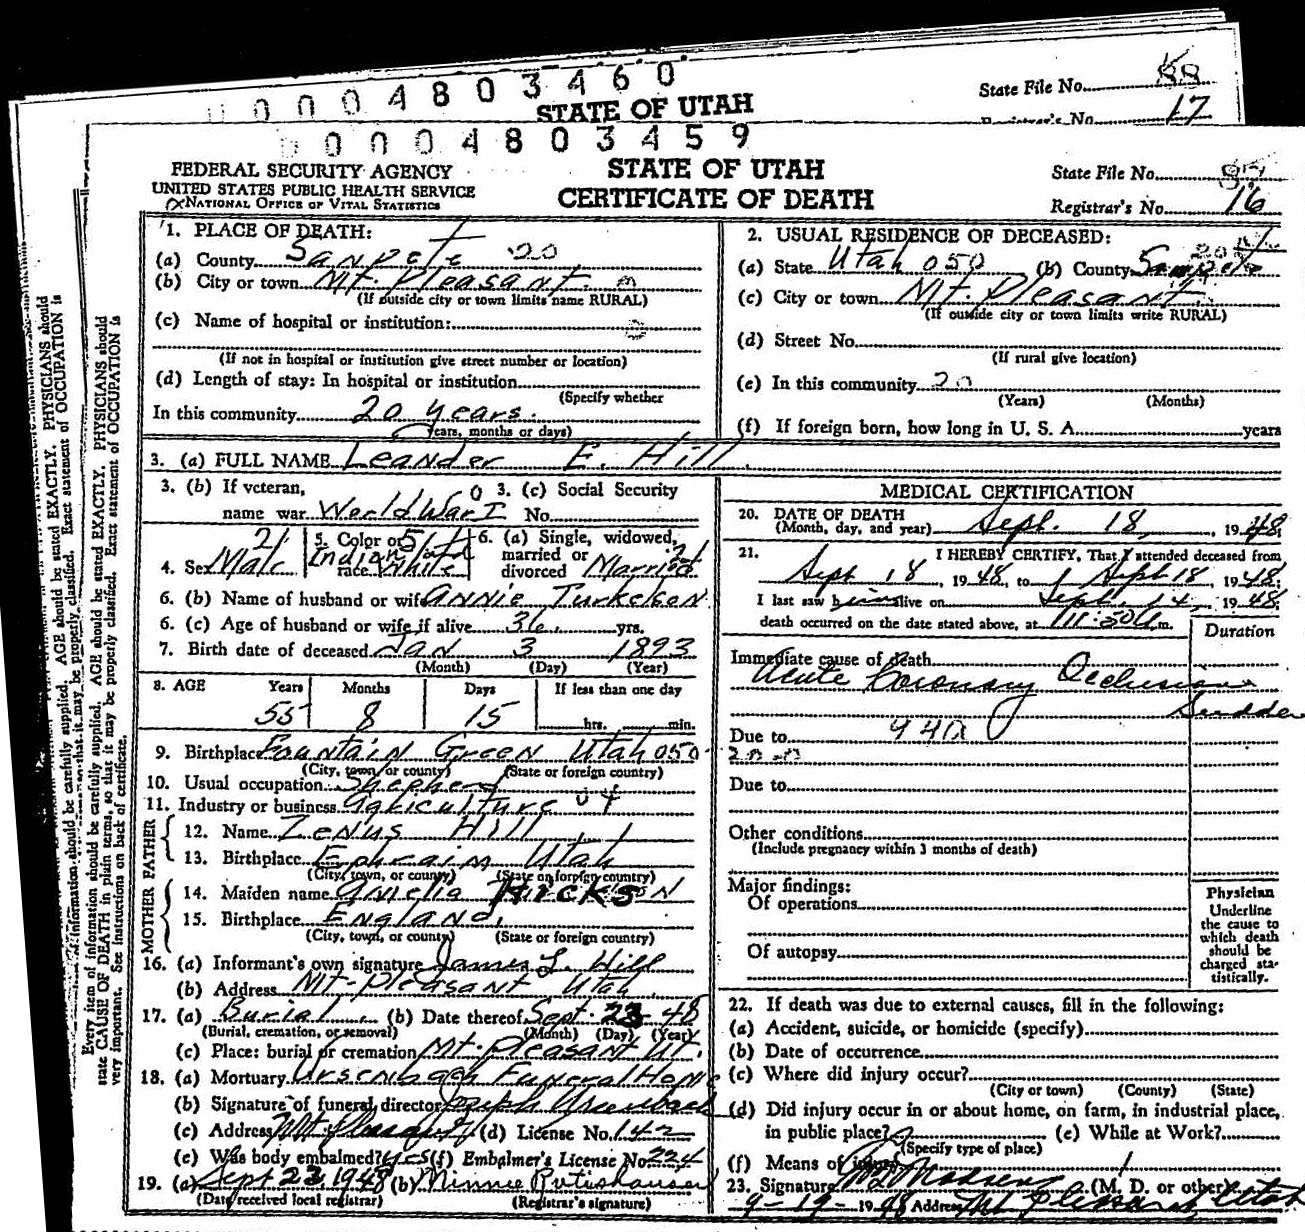 0 0 0 4 8 0 3 4 6 0
STATE OF UTAH
State File No. 88
Registrar's No. 17
0 0 0 4 8 0 3 4 5 9
FEDERAL SECURITY AGENCY
UNITED STATES PUBLIC HEALTH SERVICE
NATIONAL OFFICE OF VITAL STATISTICS
STATE OF UTAH
CERTIFICATE OF DEATH
State File No.
Registrar's No. 16
Every item of information should be carefully supplied. AGE should be stated EXACTLY. PHYSICIANS should
state CAUSE OF DEATH in plain terms, so that it may be properly classified. Exact statement of OCCUPATION is
very important. See instructions on back of certificate.
1. PLACE OF DEATH:
(a) County Sanpete 20
(b) City or town Mt. Pleasant
(If outside city or town limits name RURAL)
(c) Name of hospital or institution:
(If not in hospital or institution give street number or location)
(d) Length of stay: In hospital or institution
(Specify whether
In this community 20 years.
years, months or days)
2. USUAL RESIDENCE OF DECEASED:
(a) State Utah 050 (b) County Sanpete
(c) City or town Mt. Pleasant
(If outside city or town limits write RURAL)
(d) Street No.
(If rural give location)
(e) In this community 20
(Years) (Months)
(f) If foreign born, how long in U. S. A. years
3. (a) FULL NAME Leander E. Hill
3. (b) If veteran,
name war World War I
3. (c) Social Security
No.
4. Sex Male
5. Color or
race Indian and White
6. (a) Single, widowed,
married or
divorced Married
6. (b) Name of husband or wife Annie Turkelson
6. (c) Age of husband or wife if alive 36 yrs.
7. Birth date of deceased Jan 3 1893
(Month) (Day) (Year)
8. AGE Years Months Days If less than one day
55 8 15 hrs. min.
9. Birthplace Fountain Green Utah 050
(City, town, or county) (State or foreign country)
10. Usual occupation Shepherd
11. Industry or business Agriculture 04
FATHER
12. Name Zenus Hill
13. Birthplace Ephraim Utah
(City, town, or county) (State or foreign country)
MOTHER
14. Maiden name Amelia Hicks
15. Birthplace England.
(City, town, or county) (State or foreign country)
16. (a) Informant's own signature James L. Hill
(b) Address Mt-Pleasant Utah
17. (a) Burial (b) Date thereof Sept. 23 48
(Burial, cremation, or removal) (Month) (Day) (Year)
(c) Place: burial or cremation Mt-Pleasant Ut.
18. (a) Mortuary Ursenbach Funeral Home
(b) Signature of funeral director Joseph Ursenbach
(c) Address Mt. Pleasant (d) License No. 142
(e) Was body embalmed? yes (f) Embalmer's License No. 224
19. (a) Sept 23 1948 (b) Minnie Rutishauser
(Date received local registrar) (Registrar's signature)
MEDICAL CERTIFICATION
20. DATE OF DEATH
(Month, day, and year) Sept. 18, 1948
21. I HEREBY CERTIFY, That I attended deceased from
Sept 18, 1948, to Sept 18, 1948
I last saw him alive on Sept. 14, 1948
death occurred on the date stated above, at m.
Duration
Immediate cause of death
Acute Coronary Occlusion
Sudden
Due to
Due to
Other conditions
(Include pregnancy within 3 months of death)
Major findings:
Of operations
Of autopsy
Physician
Underline
the cause to
which death
should be
charged sta-
tistically.
22. If death was due to external causes, fill in the following:
(a) Accident, suicide, or homicide (specify)
(b) Date of occurrence
(c) Where did injury occur?
(City or town) (County) (State)
(d) Did injury occur in or about home, on farm, in industrial place,
in public place? (e) While at Work?
(Specify type of place)
(f) Means of injury
23. Signature Madsen (M. D. or other)
9-19-1948 Address Mt Pleasant, Utah